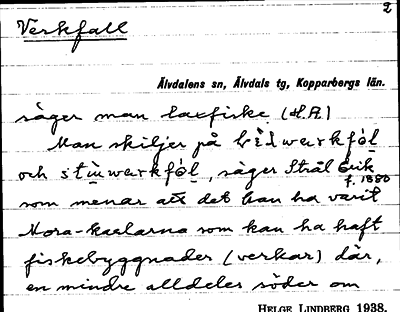 2
Verkfall
Älvdalens sn, Älvdals tg, Kopparbergs län.
säger man laxfiske (H.A.)
Man skiljer på
och stùwwarkfòl, säger Strål Erik
f. 1880
som menar att det kan ha varit
Mora-kaelarna som kan ha haft
fiskebyggnader (verkar) där,
en mindre alldeles söder om
HELGE LINDBERG 1938.